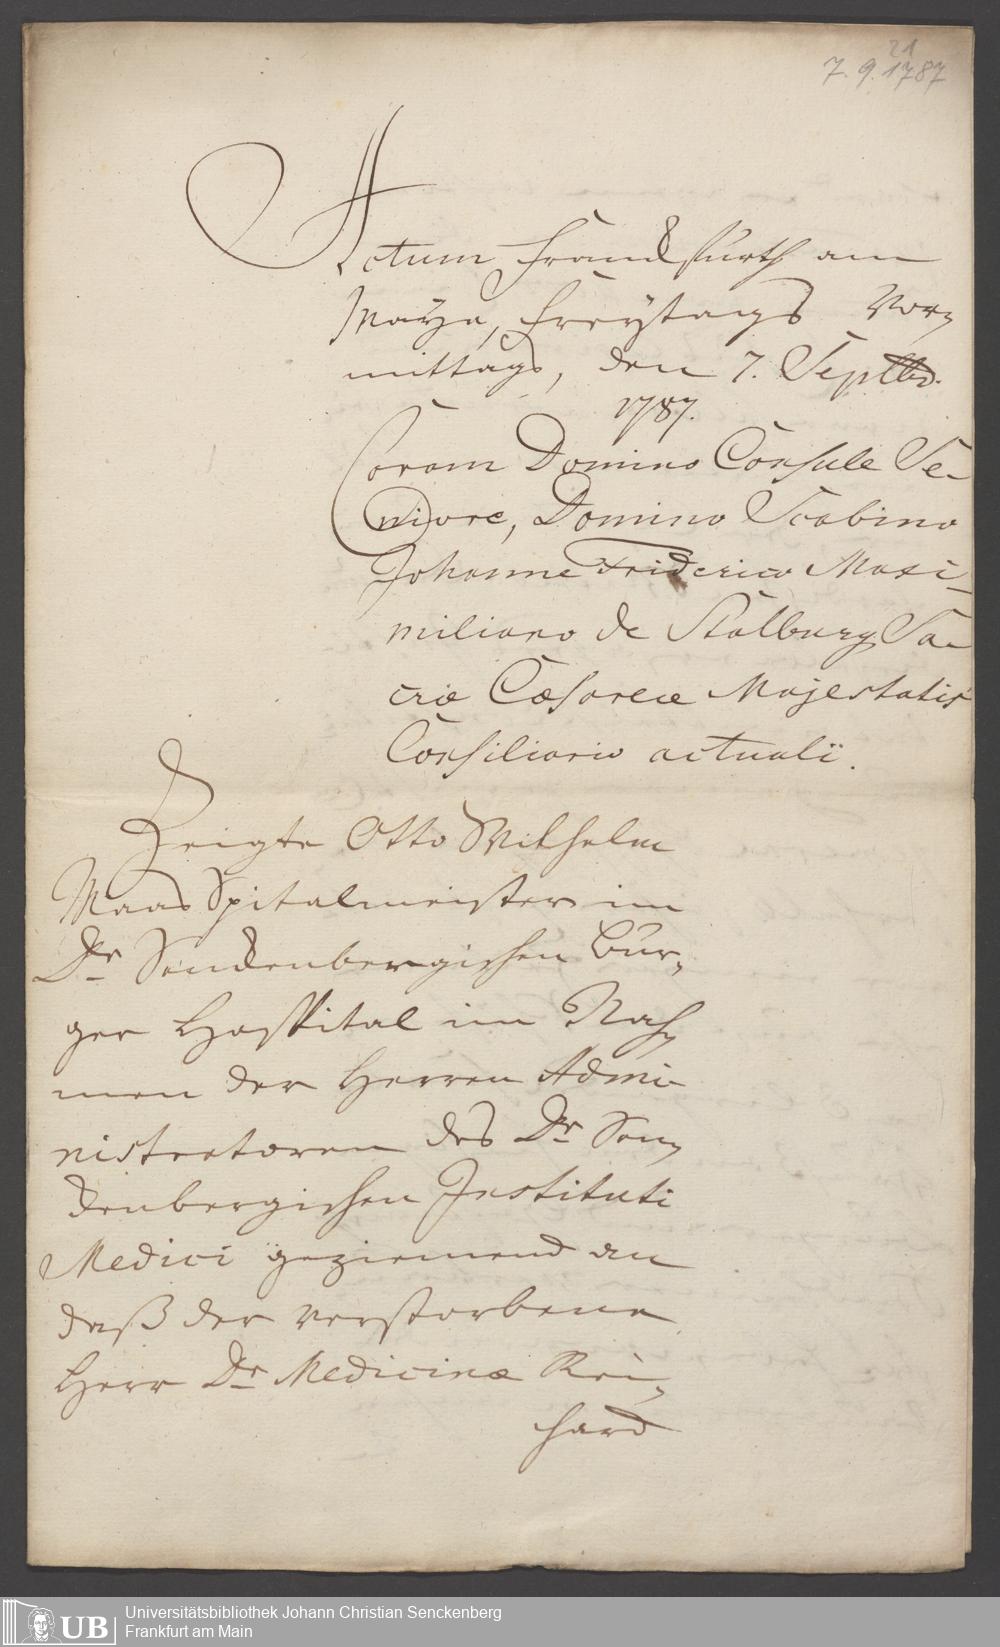 21
7. 9. 1787
Actum Franckfurth am
Mayn, Freytags Vor-
mittags, den 7. Septbr.
1787.
Coram Domino Consule Se-
niore, Domino Scabino
Johanne Friderico Maxi-
miliano de Stalburg Sa-
cræ Cæsareæ Majestatis
Consiliario actuali.
Zeigte Otto Wilhelm
Maas Spitalmeister im
Dr Senckenbergischen Bur-
ger Hospital im Nah-
men der Herren Admi-
nistratoren des Dr Sen-
ckenbergischen Instituti
Medici geziemend an
daß der verstorbene
Herr Dr Medicinæ Rei-
hard
UB
Universitätsbibliothek Johann Christian Senckenberg
Frankfurt am Main